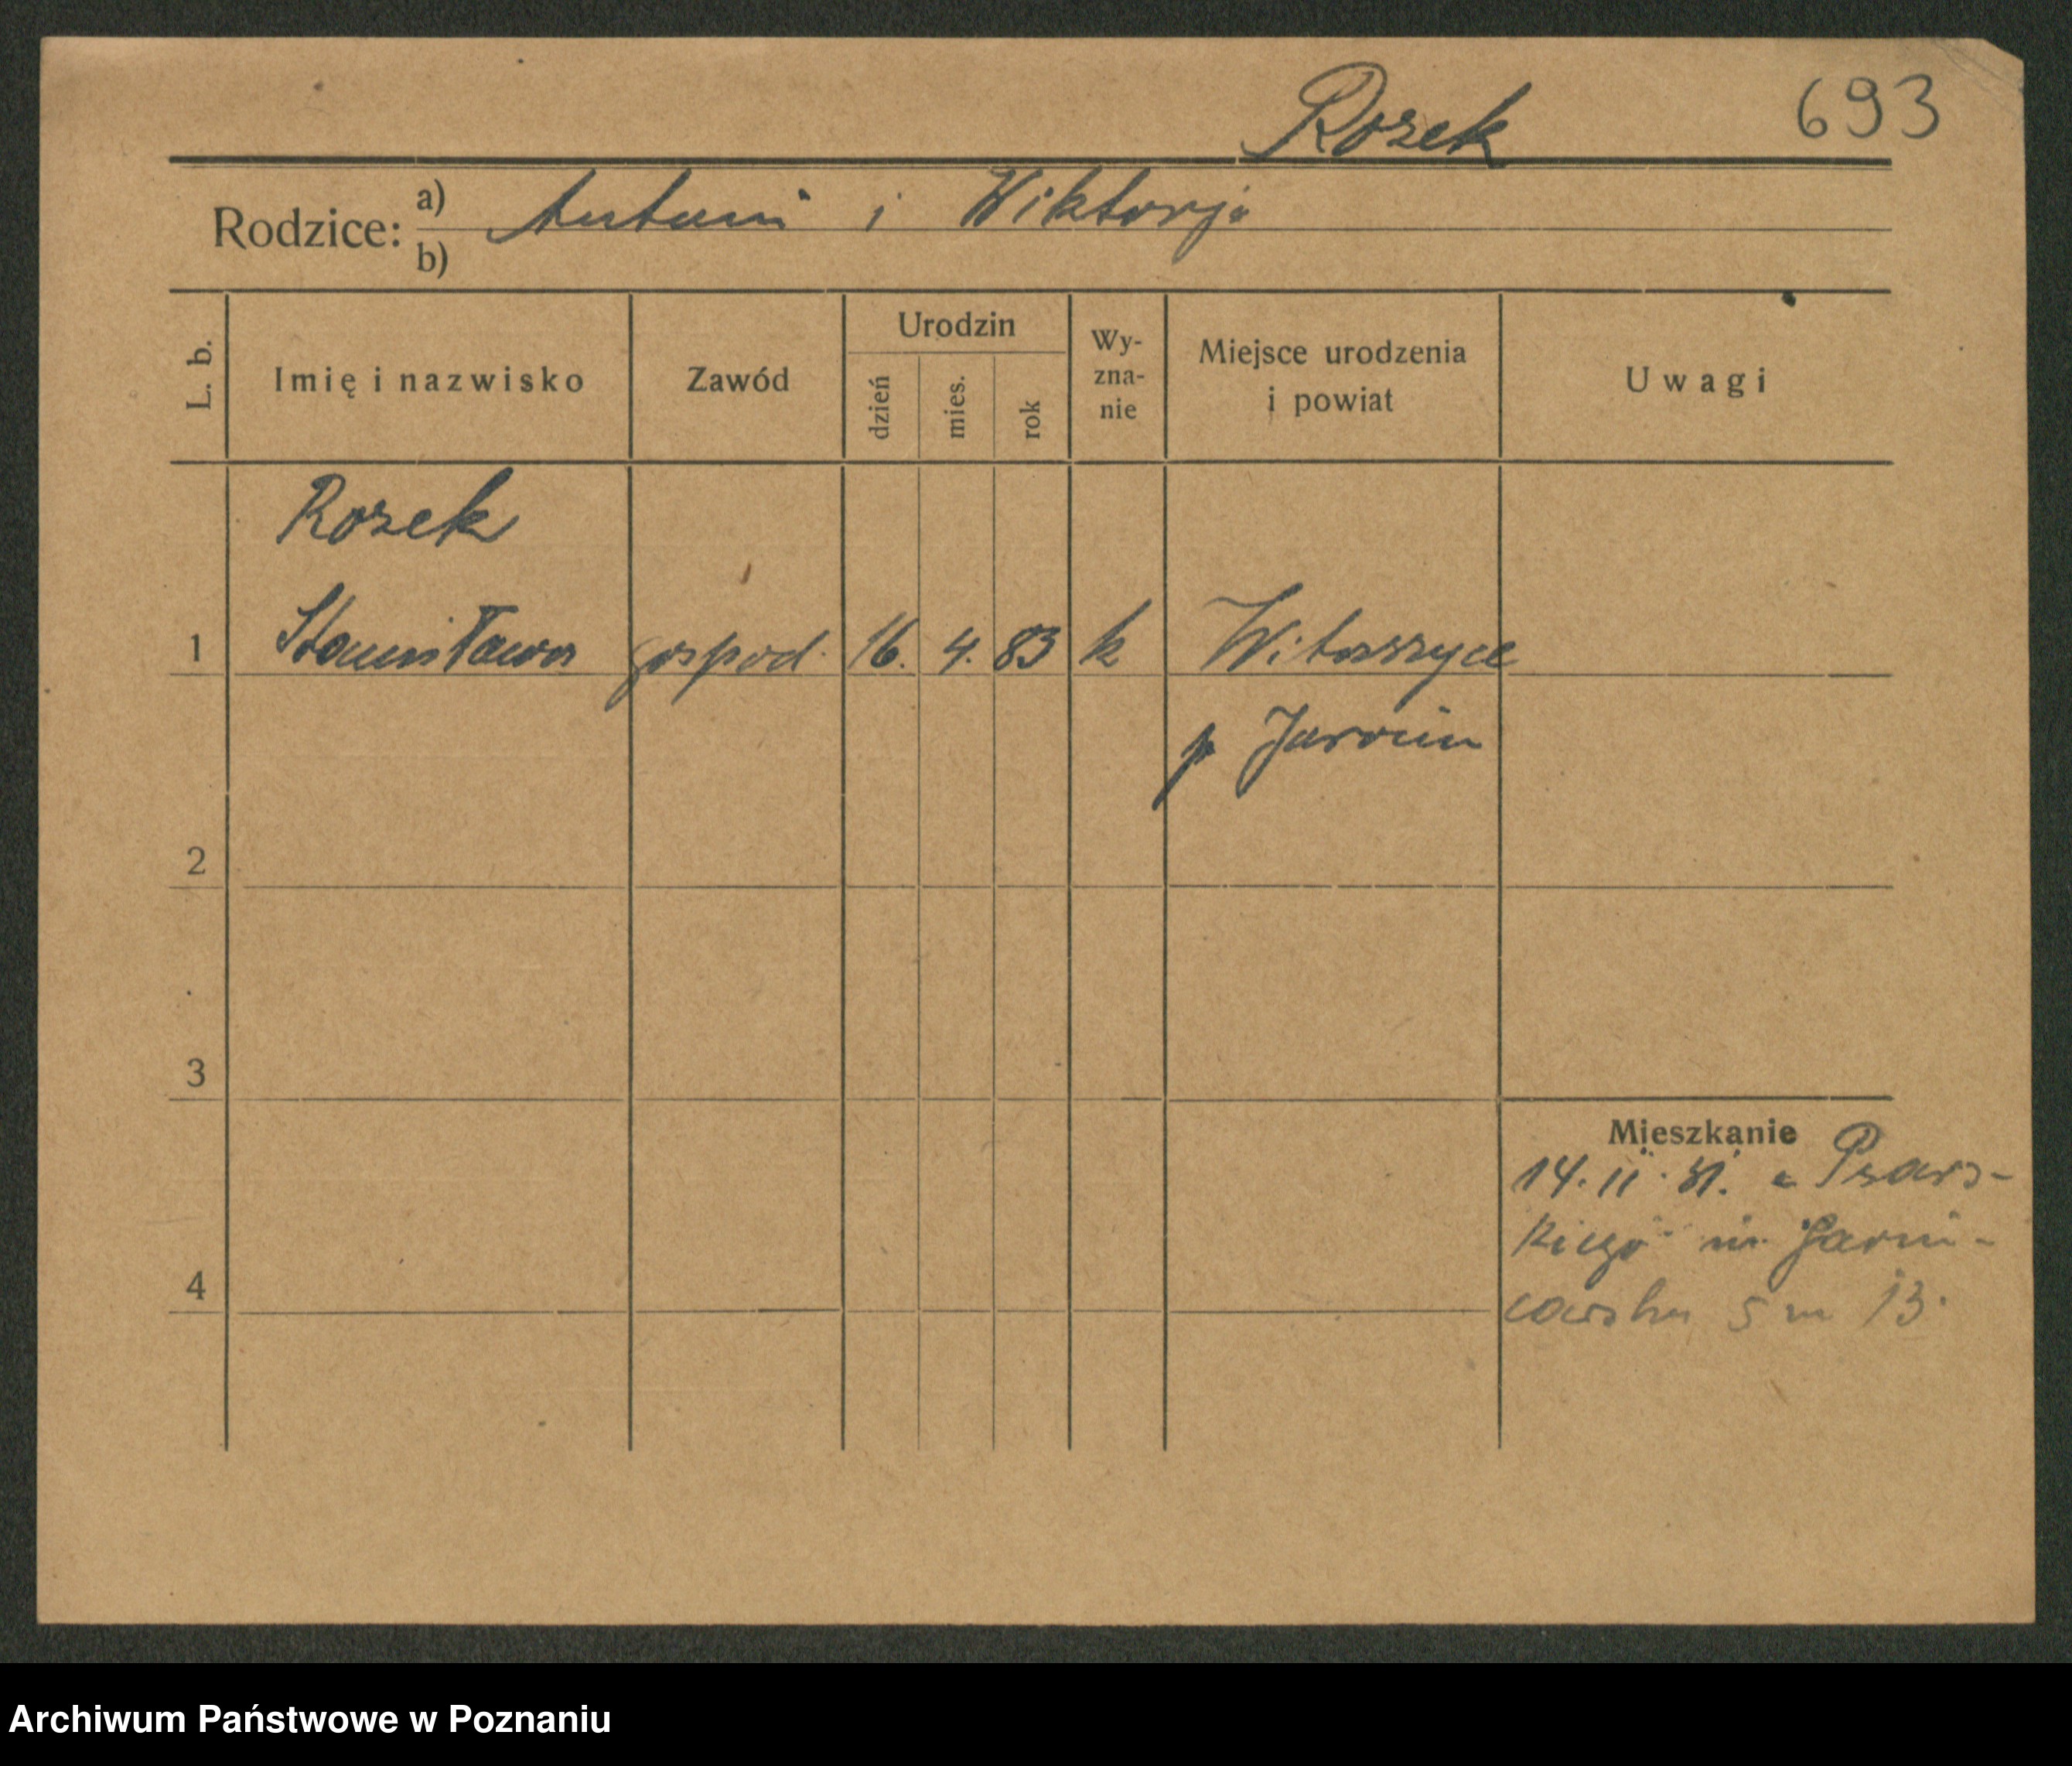 Rozek 693
Rodzice: a) Antoni i Wiktorja
b)
L. b. Imię i nazwisko Zawód Urodzin dzień mies. rok Wy- zna- nie Miejsce urodzenia i powiat Uwagi
Rozek
1 Stanisława gospod. 16. 4. 83 k Witaszyce
p Jarocin
2
3
Mieszkanie
14. 11. 31. Psars-
kiego
4
5 m 13.
Archiwum Państwowe w Poznaniu